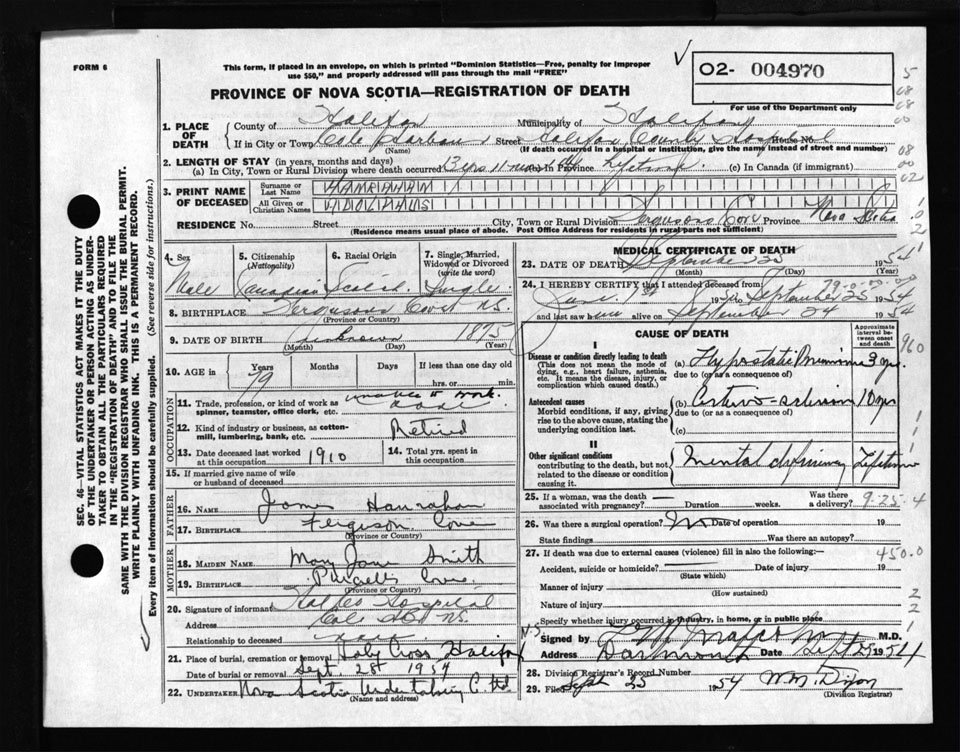 FORM 6
This form, if placed in an envelope, on which is printed "Dominion Statistics—Free, penalty for improper
use $50," and properly addressed will pass through the mail "FREE"
PROVINCE OF NOVA SCOTIA—REGISTRATION OF DEATH
O2- 004970
For use of the Department only
5
08
08
00
08
00
02
1. PLACE OF DEATH
County of Halifax Municipality of Halifax
If in City or Town Cole Harbour Street Halifax County Hospital House No.
(Name) (If death occurred in a hospital or institution, give the name instead of street and number)
2. LENGTH OF STAY (in years, months and days)
(a) In City, Town or Rural Division where death occurred 13 yrs 11 mos (b) In Province Lifetime (c) In Canada (if immigrant)
3. PRINT NAME OF DECEASED
Surname or Last Name HANRAHAN
All Given or Christian Names
RESIDENCE No. Street City, Town or Rural Division Fergusons Cove Province Nova Scotia
(Residence means usual place of abode. Post Office Address for residents in rural parts not sufficient)
4. Sex Male
5. Citizenship (Nationality) Canadian
6. Racial Origin
7. Single, Married, Widowed or Divorced (write the word) Single
8. BIRTHPLACE Fergusons Cove NS.
(Province or Country)
9. DATE OF BIRTH unknown 1875
(Month) (Day) (Year)
10. AGE in Years 79 Months Days If less than one day old
hrs. or min.
OCCUPATION
11. Trade, profession, or kind of work as spinner, teamster, office clerk, etc. unable to work.
12. Kind of industry or business, as cotton-mill, lumbering, bank, etc. Retired
13. Date deceased last worked at this occupation 1910
14. Total yrs. spent in this occupation
15. If married give name of wife or husband of deceased
FATHER
16. Name James Hanrahan
17. BIRTHPLACE Ferguson Cove
(Province or Country)
MOTHER
18. MAIDEN NAME Mary Jane Smith
19. BIRTHPLACE Purcells Cove
(Province or Country)
20. Signature of informant Halifax Hospital
Address Cole Hbr NS.
Relationship to deceased
21. Place of burial, cremation or removal Holy Cross Halifax
Date of burial or removal Sept. 28th 1954
22. UNDERTAKER Nova Scotia Undertaking C. Ltd.
(Name and address)
MEDICAL CERTIFICATE OF DEATH
23. DATE OF DEATH September 25 1954
(Month) (Day) (Year)
24. I HEREBY CERTIFY that I attended deceased from
June 1st 19 to September 25 1954
and last saw him alive on September 24 1954
CAUSE OF DEATH
Approximate interval between onset and death
I
Disease or condition directly leading to death
(This does not mean the mode of dying, e.g., heart failure, asthenia, etc. It means the disease, injury, or complication which caused death.)
(a) Hypostatic Pneumonia
due to (or as a consequence of)
Antecedent causes
Morbid conditions, if any, giving rise to the above cause, stating the underlying condition last.
(b) Arterio-sclerosis 10 yrs
due to (or as a consequence of)
(c)
II
Other significant conditions
contributing to the death, but not related to the disease or condition causing it.
Mental deficiency Lifetime
25. If a woman, was the death associated with pregnancy? Duration weeks. Was there a delivery?
9-25-4
26. Was there a surgical operation? No Date of operation 19
State findings Was there an autopsy?
27. If death was due to external causes (violence) fill in also the following:—
450.0
Accident, suicide or homicide? Date of injury 19
(State which)
Manner of injury
(How sustained)
Nature of injury
Specify whether injury occurred in industry, in home, or in public place
N.S.
Signed by M.D.
Address Dartmouth Date Sept 1954
28. Division Registrar's Record Number
29. Filed Sept 25 1954 W.M. Dixon
(Division Registrar)
SEC. 46—VITAL STATISTICS ACT MAKES IT THE DUTY
OF THE UNDERTAKER OR PERSON ACTING AS UNDER-
TAKER TO OBTAIN ALL THE PARTICULARS REQUIRED
IN THE "REGISTRATION OF DEATH" AND TO FILE THE
SAME WITH THE DIVISION REGISTRAR WHO SHALL ISSUE THE BURIAL PERMIT.
WRITE PLAINLY WITH UNFADING INK. THIS IS A PERMANENT RECORD.
Every item of information should be carefully supplied. (See reverse side for instructions.)